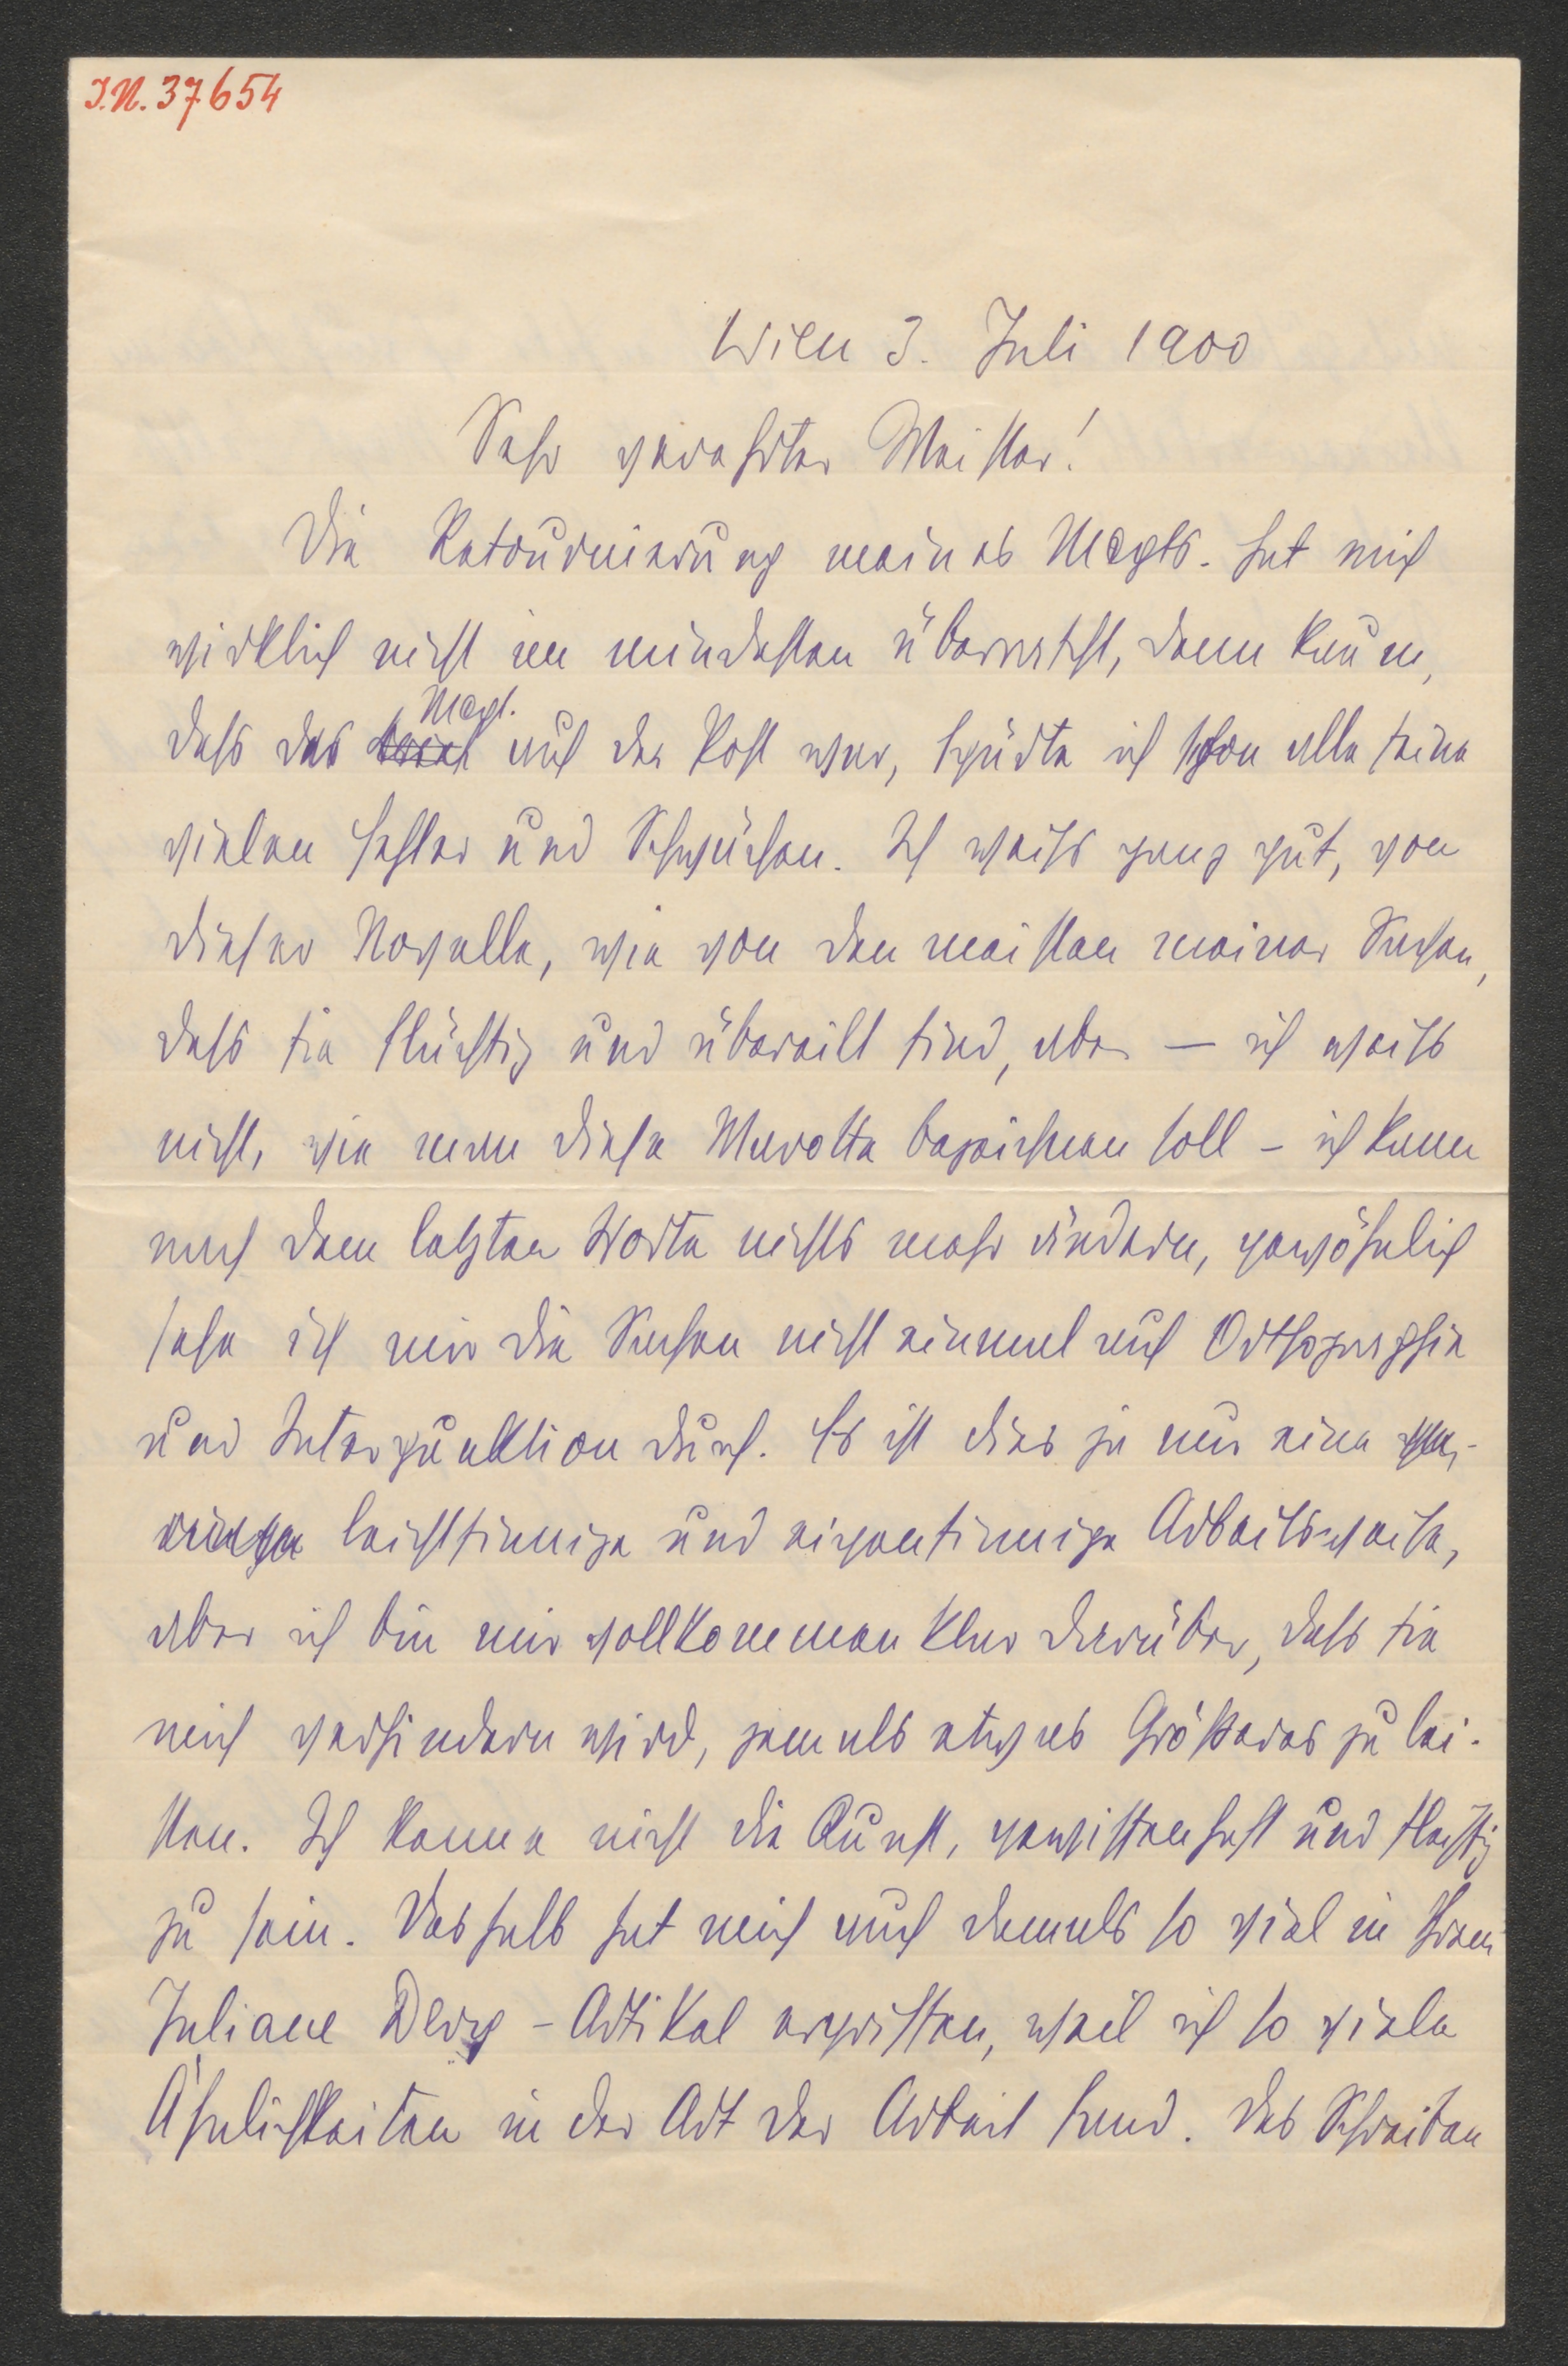 J.N. 37654
Wien 3. Juli 1900
Sehr verehrter Meister!
Die Retournierung meines Mscpts. hat mich
wirklich nicht im mindesten überrascht, denn kaum,
dass das Mscpt. auf der Post war, spürte ich schon alle seine
vielen Fehler und Schwächen. Ich weiss ganz gut, von
dieser Novelle, wie von den meisten meiner Sachen,
dass sie flüchtig und übereilt sind, aber — ich weiss
nicht, wie man diese Marotte bezeichnen soll – ich kann
nach dem letzten Worte nichts mehr ändern, gewöhnlich
sehe ich mir die Sachen nicht einmal auf Orthographie
und Interpunktion durch. Es ist dies ja nur eine
leichtsinnige und eigensinnige Arbeitsweise,
aber ich bin mir vollkommen klar darüber, dass sie
mich verhindern wird, jemals etwas Größeres zu lei-
sten. Ich kenne nicht die Kunst, gewissenhaft und fleißig
zu sein. Deshalb hat mich auch damals so viel in Ihrem
Juliane Dery – Artikel ergriffen, weil ich so viele
Ähnlichkeiten in der Art der Arbeit fand. Das Schreiben